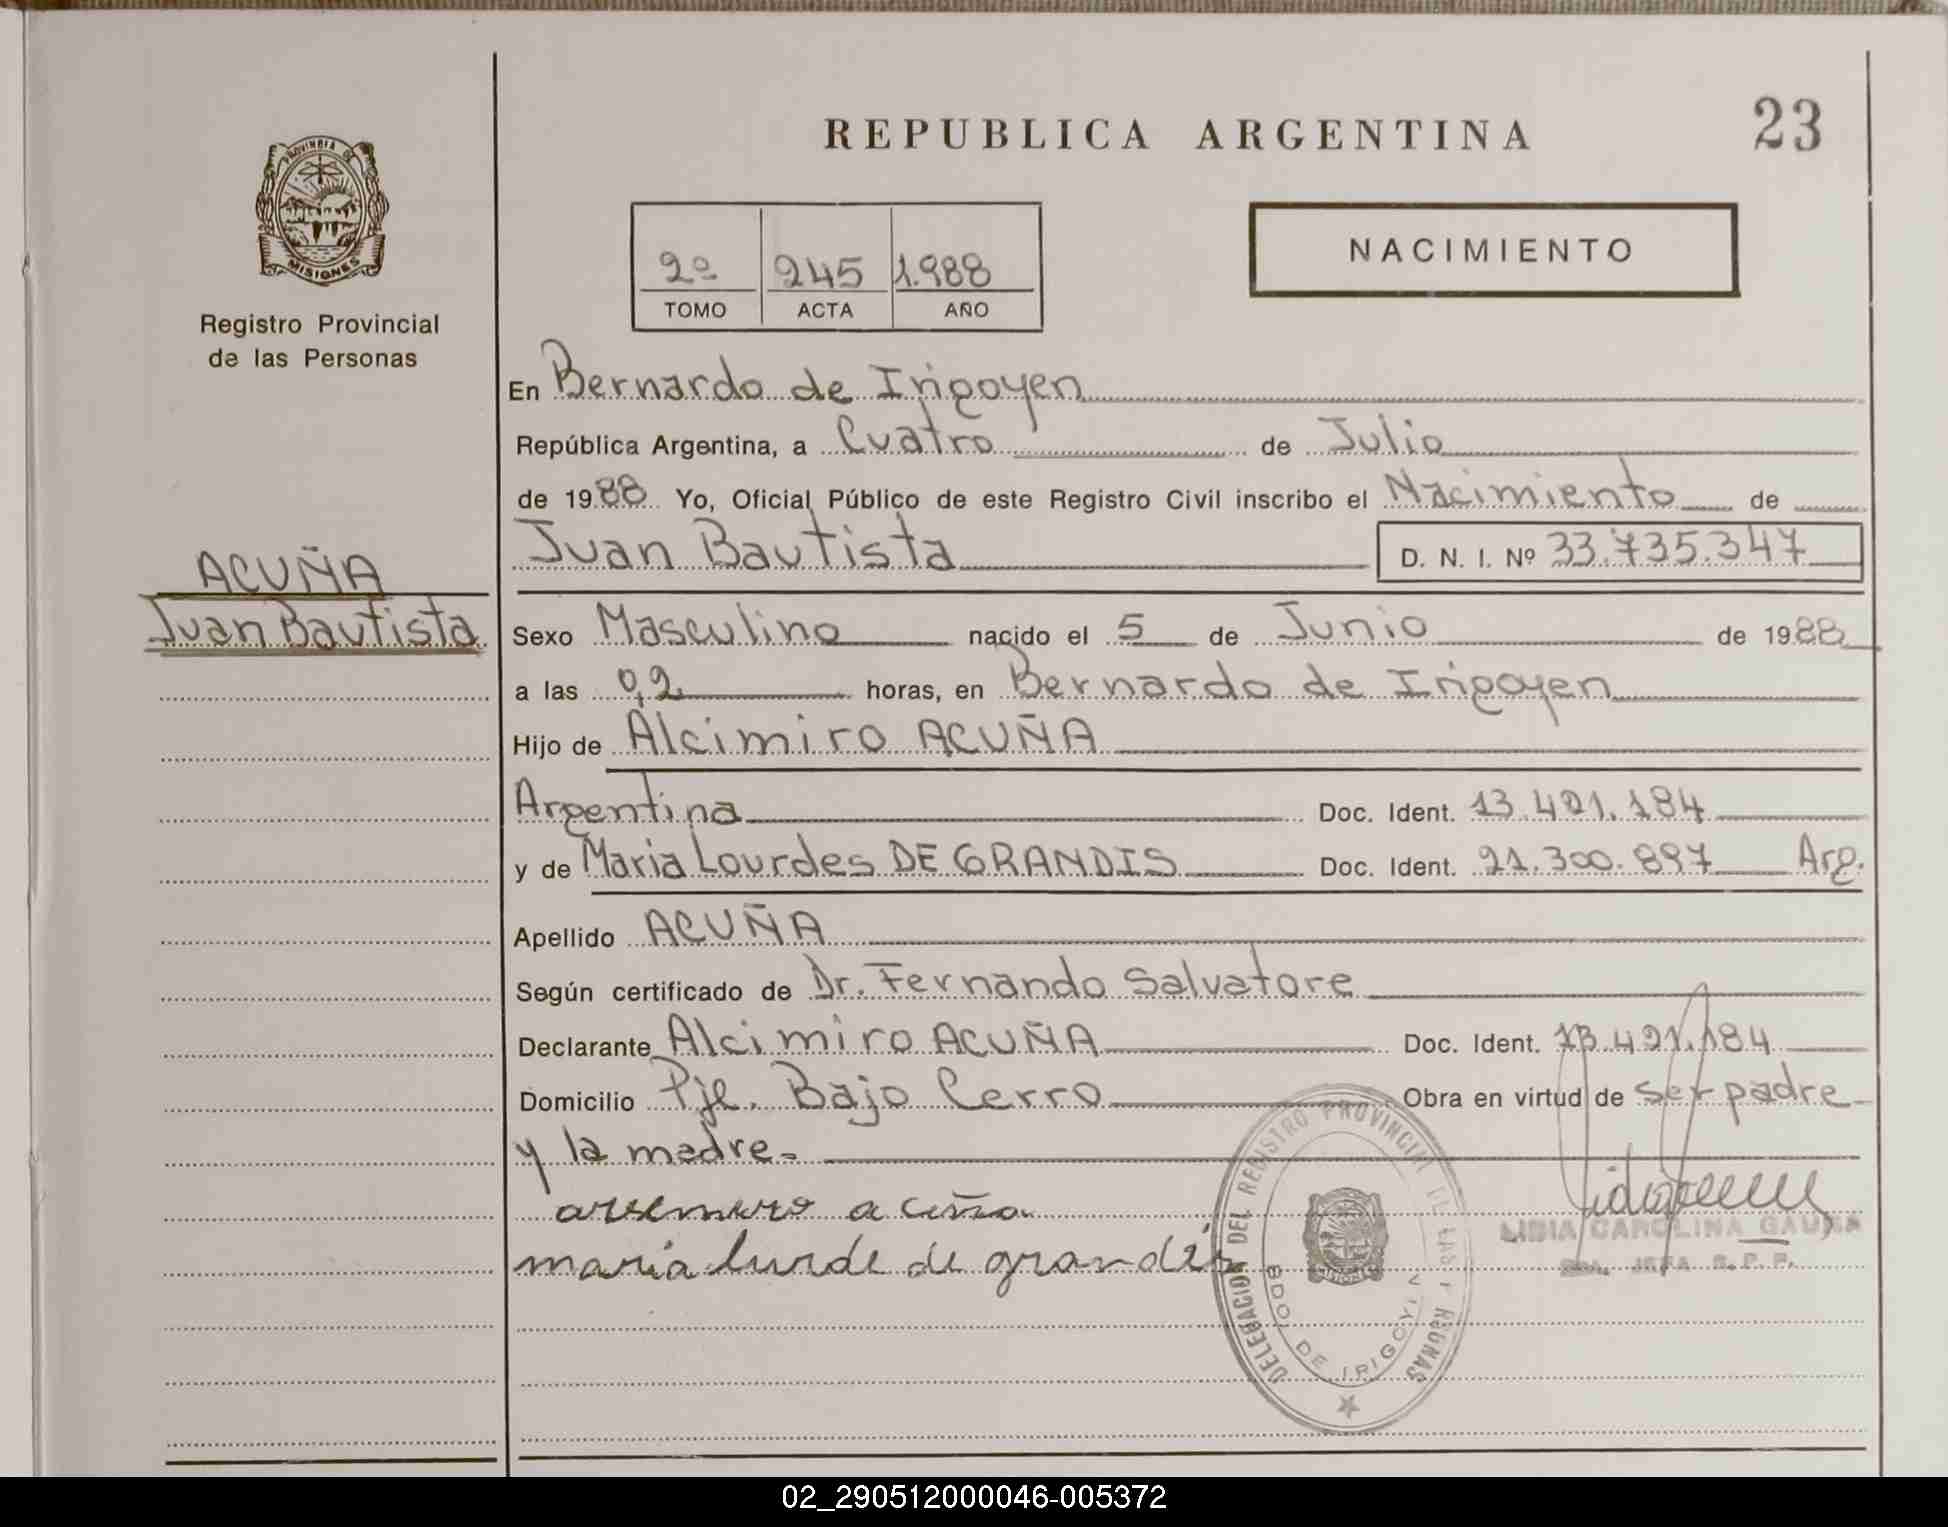 REPUBLICA ARGENTINA
23
PROVINCIA DE
MISIONES
Registro Provincial
de las Personas
2º 245 1.988
TOMO ACTA AÑO
NACIMIENTO
En Bernardo de Irigoyen
República Argentina, a Cuatro de Julio
de 1988 Yo, Oficial Público de este Registro Civil inscribo el Nacimiento de
Juan Bautista D. N. I. Nº 33.735.347
ACUÑA
Juan Bautista
Sexo Masculino nacido el 5 de Junio de 1988
a las 0,2 horas, en Bernardo de Irigoyen
Hijo de Alcimiro ACUÑA
Argentina Doc. Ident. 13.421.184
y de Maria Lourdes DE GRANDIS Doc. Ident. 21.300.897 Arg.
Apellido ACUÑA
Según certificado de Dr. Fernando Salvatore
Declarante Alcimiro ACUÑA Doc. Ident. 13.421.184
Domicilio Pje. Bajo Cerro Obra en virtud de ser padre
y la madre.
acuña
maria lurde de grandis
LIDIA CAROLINA
JEFA R. P. P.
DELEGACION DEL REGISTRO PROVINCIAL DE LAS PERSONAS
BDO DE IRIGOYEN
02_290512000046-005372